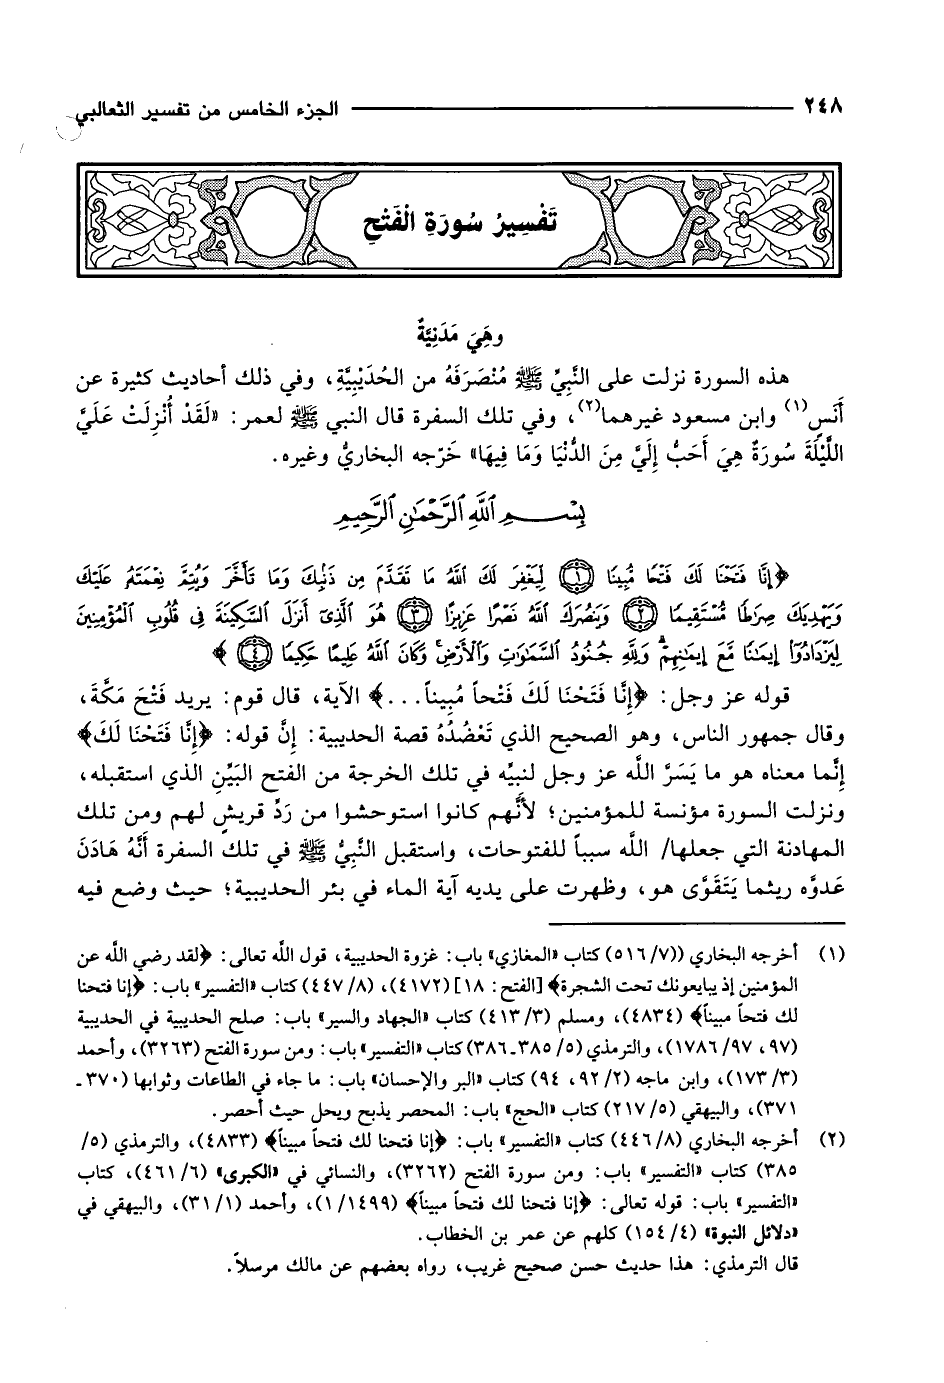 ٢٤٨ ــــــ الجزء الخامس من تفسير الثعالبي
تَفْسِيرُ سُورَةِ الْفَتْحِ
وهِيَ مَدَنِيَّةٌ
هذه السورة نزلت على النَّبِيِّ ﷺ مُنْصَرَفَهُ من الحُدَيْبِيَّةِ، وفي ذلك أحاديث كثيرة عن
أَنَسٍ(١) وابن مسعود غيرهما(٢)، وفي تلك السفرة قال النبي ﷺ لعمر: «لَقَدْ أُنْزِلَتْ عَلَيَّ
اللَّيْلَةَ سُورَةٌ هِيَ أَحَبُّ إِلَيَّ مِنَ الدُّنْيَا وَمَا فِيهَا» خَرّجه البخاريُّ وغيره.
بِسْمِ ٱللَّهِ ٱلرَّحْمَٰنِ ٱلرَّحِيمِ
﴿إِنَّا فَتَحْنَا لَكَ فَتْحًا مُّبِينًا ﴿١﴾ لِّيَغْفِرَ لَكَ ٱللَّهُ مَا تَقَدَّمَ مِن ذَنۢبِكَ وَمَا تَأَخَّرَ وَيُتِمَّ نِعْمَتَهُۥ عَلَيْكَ
وَيَهْدِيَكَ صِرَٰطًا مُّسْتَقِيمًا ﴿٢﴾ وَيَنصُرَكَ ٱللَّهُ نَصْرًا عَزِيزًا ﴿٣﴾ هُوَ ٱلَّذِىٓ أَنزَلَ ٱلسَّكِينَةَ فِى قُلُوبِ ٱلْمُؤْمِنِينَ
لِيَزْدَادُوٓا۟ إِيمَٰنًا مَّعَ إِيمَٰنِهِمْ ۗ وَلِلَّهِ جُنُودُ ٱلسَّمَٰوَٰتِ وَٱلْأَرْضِ ۚ وَكَانَ ٱللَّهُ عَلِيمًا حَكِيمًا ﴿٤﴾ ﴾
قوله عز وجل: ﴿إِنَّا فَتَحْنَا لَكَ فَتْحاً مُبِيناً...﴾ الآية، قال قوم: يريد فَتْحَ مَكَّةَ،
وقال جمهور الناس، وهو الصحيح الذي تَعْضُدُهُ قصة الحديبية: إنَّ قوله: ﴿إِنَّا فَتَحْنَا لَكَ﴾
إنَّما معناه هو ما يَسَرَّ اللَّه عز وجل لنبيِّه في تلك الخرجة من الفتح البَيِّنِ الذي استقبله،
ونزلت السورة مؤنسة للمؤمنين؛ لأنَّهم كانوا استوحشوا من رَدِّ قريشٍ لهم ومن تلك
المهادنة التي جعلها/ اللَّه سبباً للفتوحات، واستقبل النَّبِيُّ ﷺ في تلك السفرة أَنَّهُ هَادَنَ
عَدوَّه ريثما يَتَقَوَّى هو، وظهرت على يديه آية الماء في بئر الحديبية؛ حيث وضع فيه
(١) أخرجه البخاري ((٧/ ٥١٦) كتاب «المغازي» باب: غزوة الحديبية، قول اللَّه تعالى: ﴿لقد رضي اللَّه عن
المؤمنين إذ يبايعونك تحت الشجرة﴾ [الفتح: ١٨] (٤١٧٢)، (٨/ ٤٤٧) كتاب «التفسير» باب: ﴿إنا فتحنا
لك فتحاً مبيناً﴾ (٤٨٣٤)، ومسلم (٣/ ٤١٣) كتاب «الجهاد والسير» باب: صلح الحديبية في الحديبية
(٩٧، ٩٧/ ١٧٨٦)، والترمذي (٥/ ٣٨٥ـ ٣٨٦) كتاب «التفسير» باب: ومن سورة الفتح (٣٢٦٣)، وأحمد
(٣/ ١٧٣)، وابن ماجه (٢/ ٩٢، ٩٤) كتاب «البر والإحسان» باب: ما جاء في الطاعات وثوابها (٣٧٠ ـ
٣٧١)، والبيهقي (٥/ ٢١٧) كتاب «الحج» باب: المحصر يذبح ويحل حيث أحصر.
(٢) أخرجه البخاري (٨/ ٤٤٦) كتاب «التفسير» باب: ﴿إنا فتحنا لك فتحاً مبيناً﴾ (٤٨٣٣)، والترمذي (٥/
٣٨٥) كتاب «التفسير» باب: ومن سورة الفتح (٣٢٦٢)، والنسائي في «الكبرى» (٦/ ٤٦١)، كتاب
«التفسير» باب: قوله تعالى: ﴿إنا فتحنا لك فتحاً مبيناً﴾ (١١٤٩٩/ ١)، وأحمد (١/ ٣١)، والبيهقي في
«دلائل النبوة» (٤/ ١٥٤) كلهم عن عمر بن الخطاب.
قال الترمذي: هذا حديث حسن صحيح غريب، رواه بعضهم عن مالك مرسلاً.